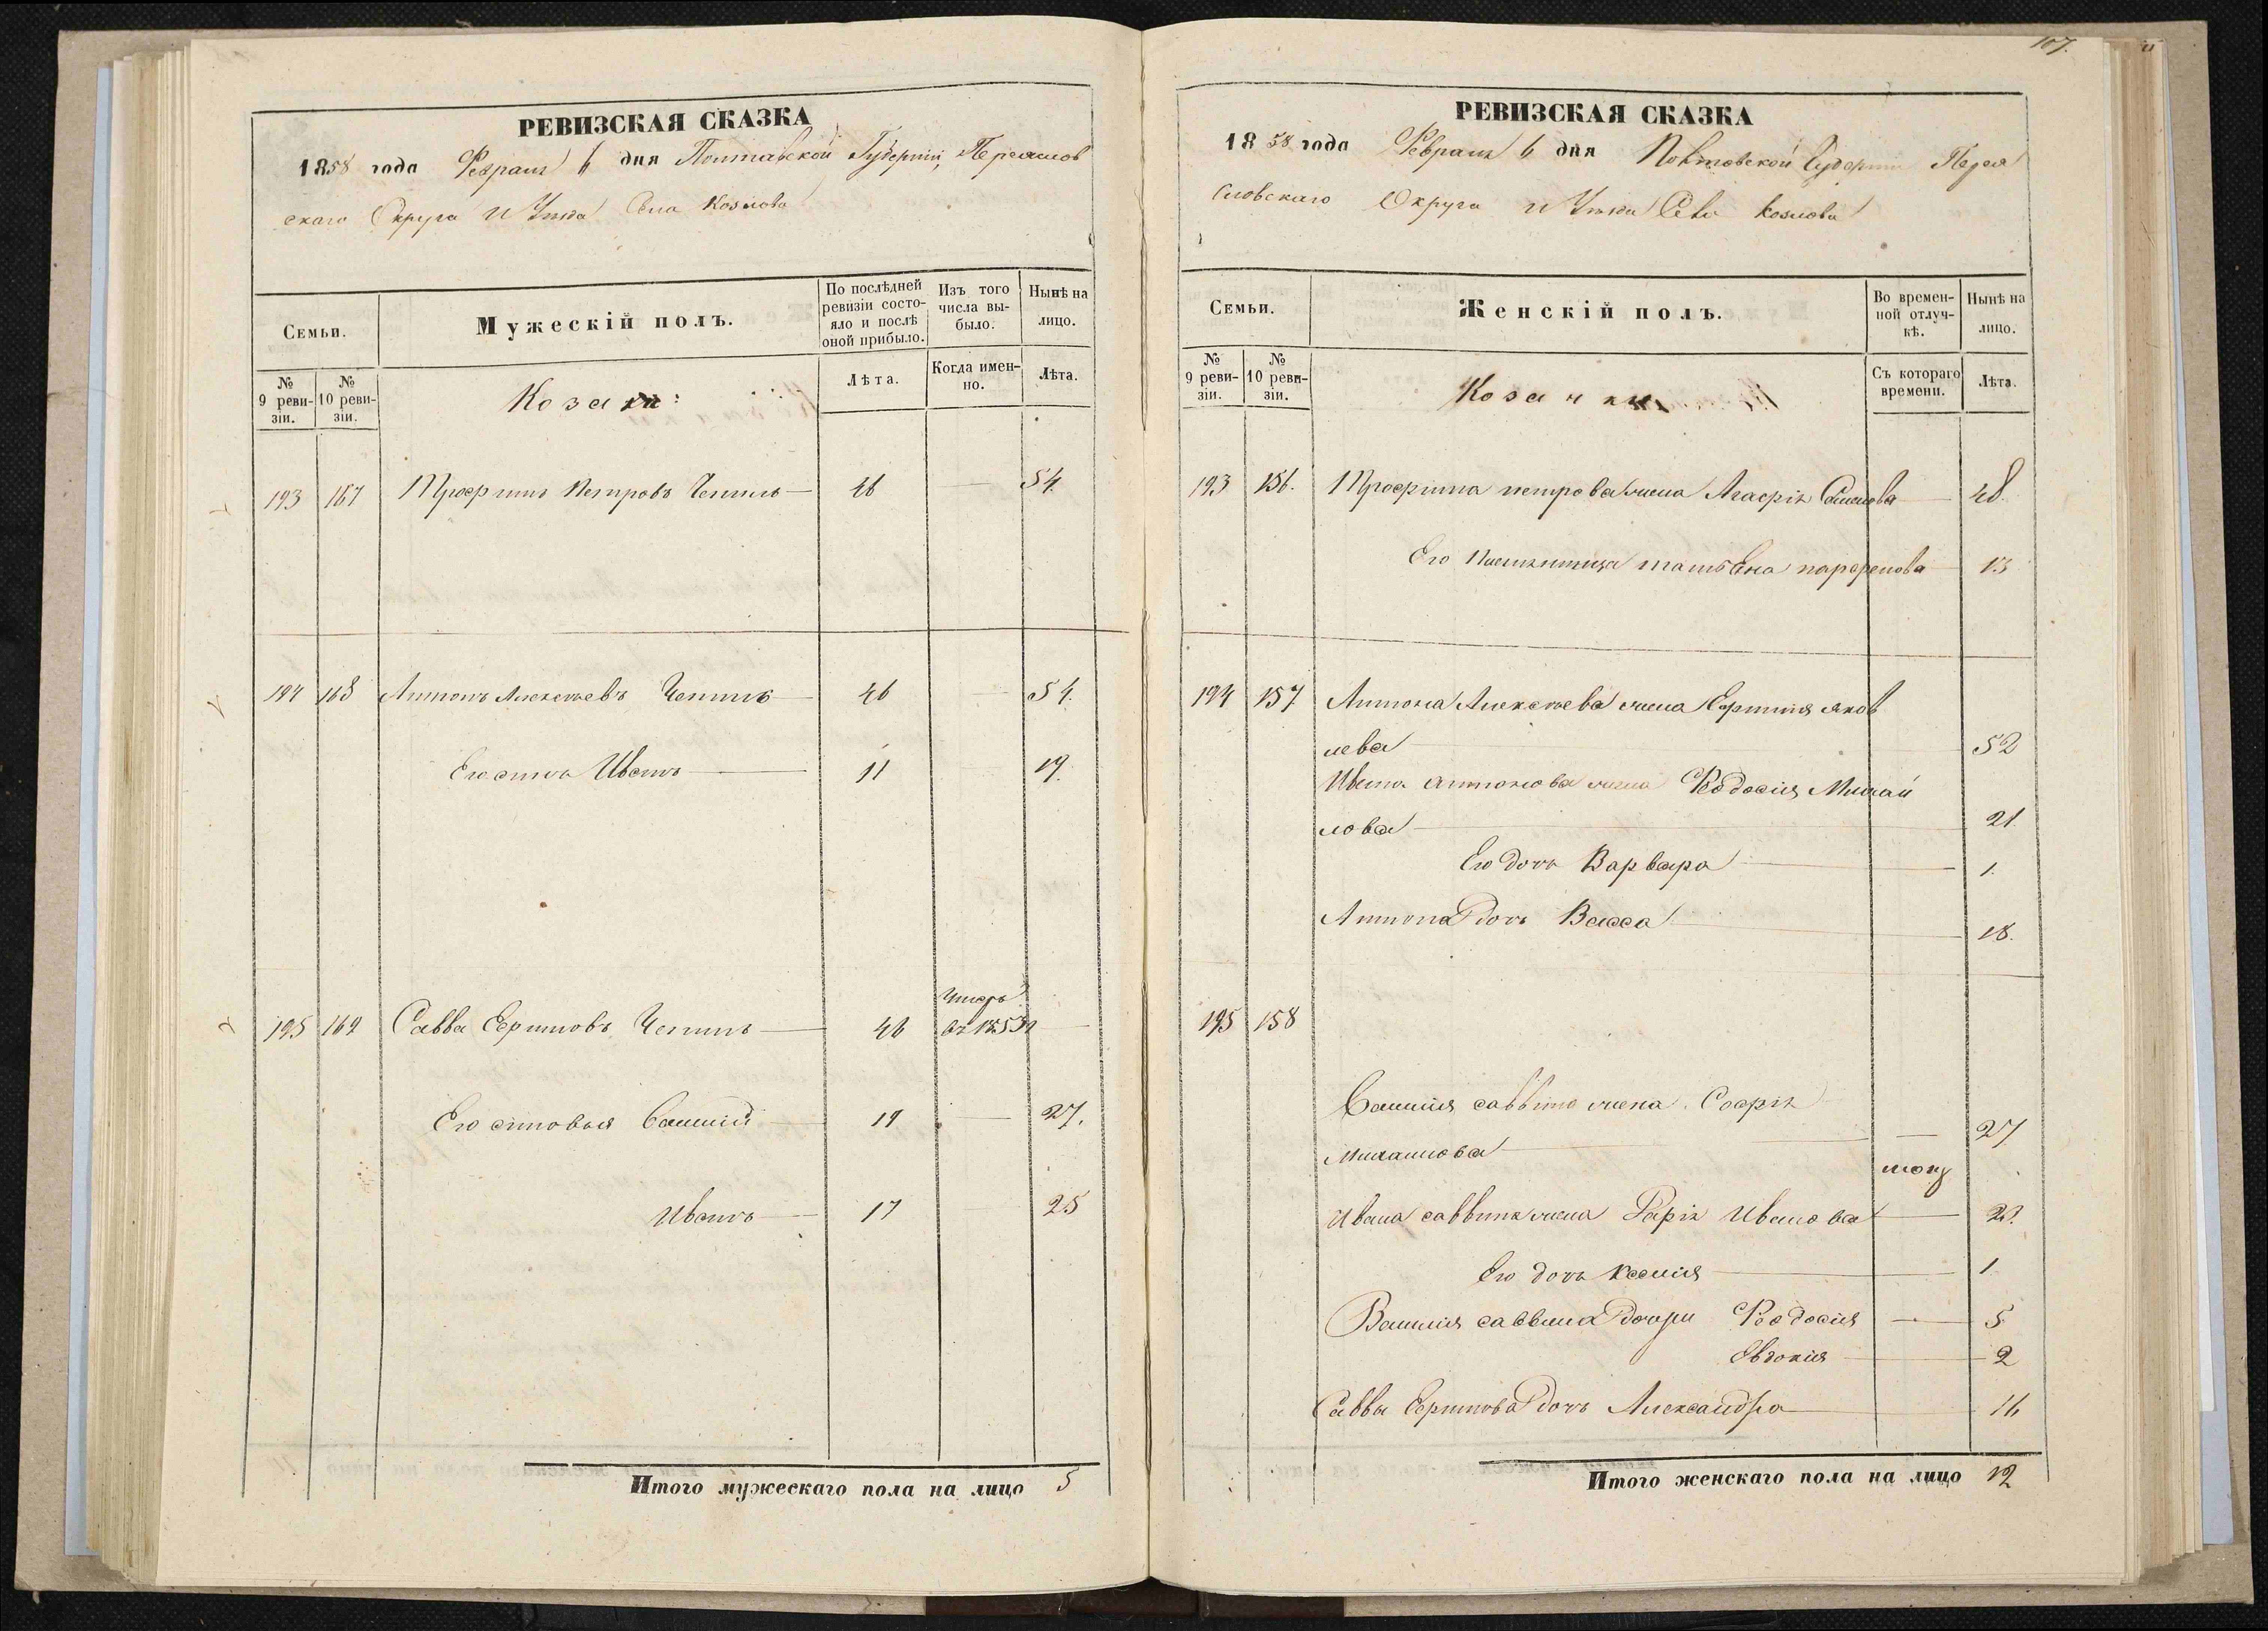 РЕВИЗСКАЯ СКАЗКА
1858 года Февраля 6 дня Полтавской Губерніи, Переяслов
скаго Округа и Уезда Села Козлова
Семьи.
Мужескій полъ.
По послѣдней ревизіи состояло и послѣ оной прибыло.
Изъ того числа выбыло.
Нынѣ на лицо.
№ 9 ревизіи.
№ 10 ревизіи.
Козаки:
Лѣта.
Когда именно.
Лѣта.
193 167 Трофимъ Петровъ Чепиль 46 — 54.
194 168 Антонъ Алексѣевъ Чепиль 46 — 54.
Его сынъ Иванъ 11 — 19.
195 169 Савва Ефимовъ Чепиль 46 умеръ въ 1853 —
Его сыновья Василий 19 — 27.
Иванъ 17 25
Итого мужескаго пола на лицо 5
107.
РЕВИЗСКАЯ СКАЗКА
1858 года Февраля 6 дня Полтавской Губерніи Перея
словскаго Округа и Уезда Села Козлова
Семьи.
Женскій полъ.
Во временной отлучкѣ.
Нынѣ на лицо.
№ 9 ревизіи.
№ 10 ревизіи.
Козачки
Съ котораго времени.
Лѣта.
193 156. Трофима петрова жена Агафія 48.
Его Племянница татьяна парфенова 13
194 157 Антона Алексѣева жена Ефимия яков
лева 52
Ивана антонова жена Феодосия Михай
лова 21.
Его дочь Варвара 1.
Антона дочь Васса 18.
195 158
Василия саввина жена Софія
Михайлова — 27
Ивана саввина жена Ивanova — 22.
Его дочь Ксения 1
Василия саввина дочери Феодосия — 5
Евдокия 2
Саввы Ефимова дочь Александра 16
Итого женскаго пола на лицо 12